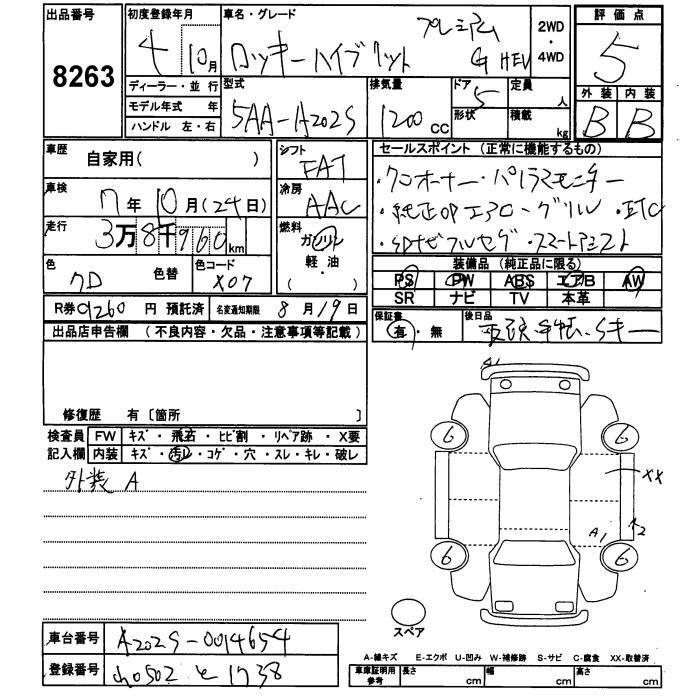 出品番号
8263
初度登録年月
4 10月
ディーラー・並 行
モデル年式 年
ハンドル 左・右
車名・グレード
プレミアム
ロッキーハイブリット G HEV
2WD
・
4WD
型式
5AA-A202S
排気量
1200 CC
ドア
5
形状
定員
人
積載
kg
評 価 点
5
外 装 内 装
B B
車歴
自家用( )
車検
7 年 10 月(24日)
走行
3万8千960km
色
色替
色コード
X07
シフト
FAT
冷房
AAC
燃料
ガソリン
軽・油
( )
セールスポイント (正常に機能するもの)
・ワンオーナー・パノラマモニター
・純正OPエアロ・グリル・ETC
・SDナビフルセグ・スマートアシスト
装備品 (純正品に限る)
PS PW ABS エアB AW
SR ナビ TV 本革
R券 9260 円 預託済 名変通知期限 8 月 19 日
保証書
有・無
後日品
出品店申告欄 (不良内容・欠品・注意事項等記載)
修復歴 有〔箇所 〕
検査員
記入欄
FW キズ・飛石・ヒビ割・リペア跡・X要
内装 キズ・汚レ・コゲ・穴・スレ・キレ・破レ
外装 A
A1
6 6
XX
A1
2
6 6
スペア
車台番号
A202S-0014654
登録番号
A-線キズ E-エクボ U-凹み W-補修跡 S-サビ C-腐食 XX-取替済
車庫証明用
参考
長さ cm 幅 cm 高さ cm